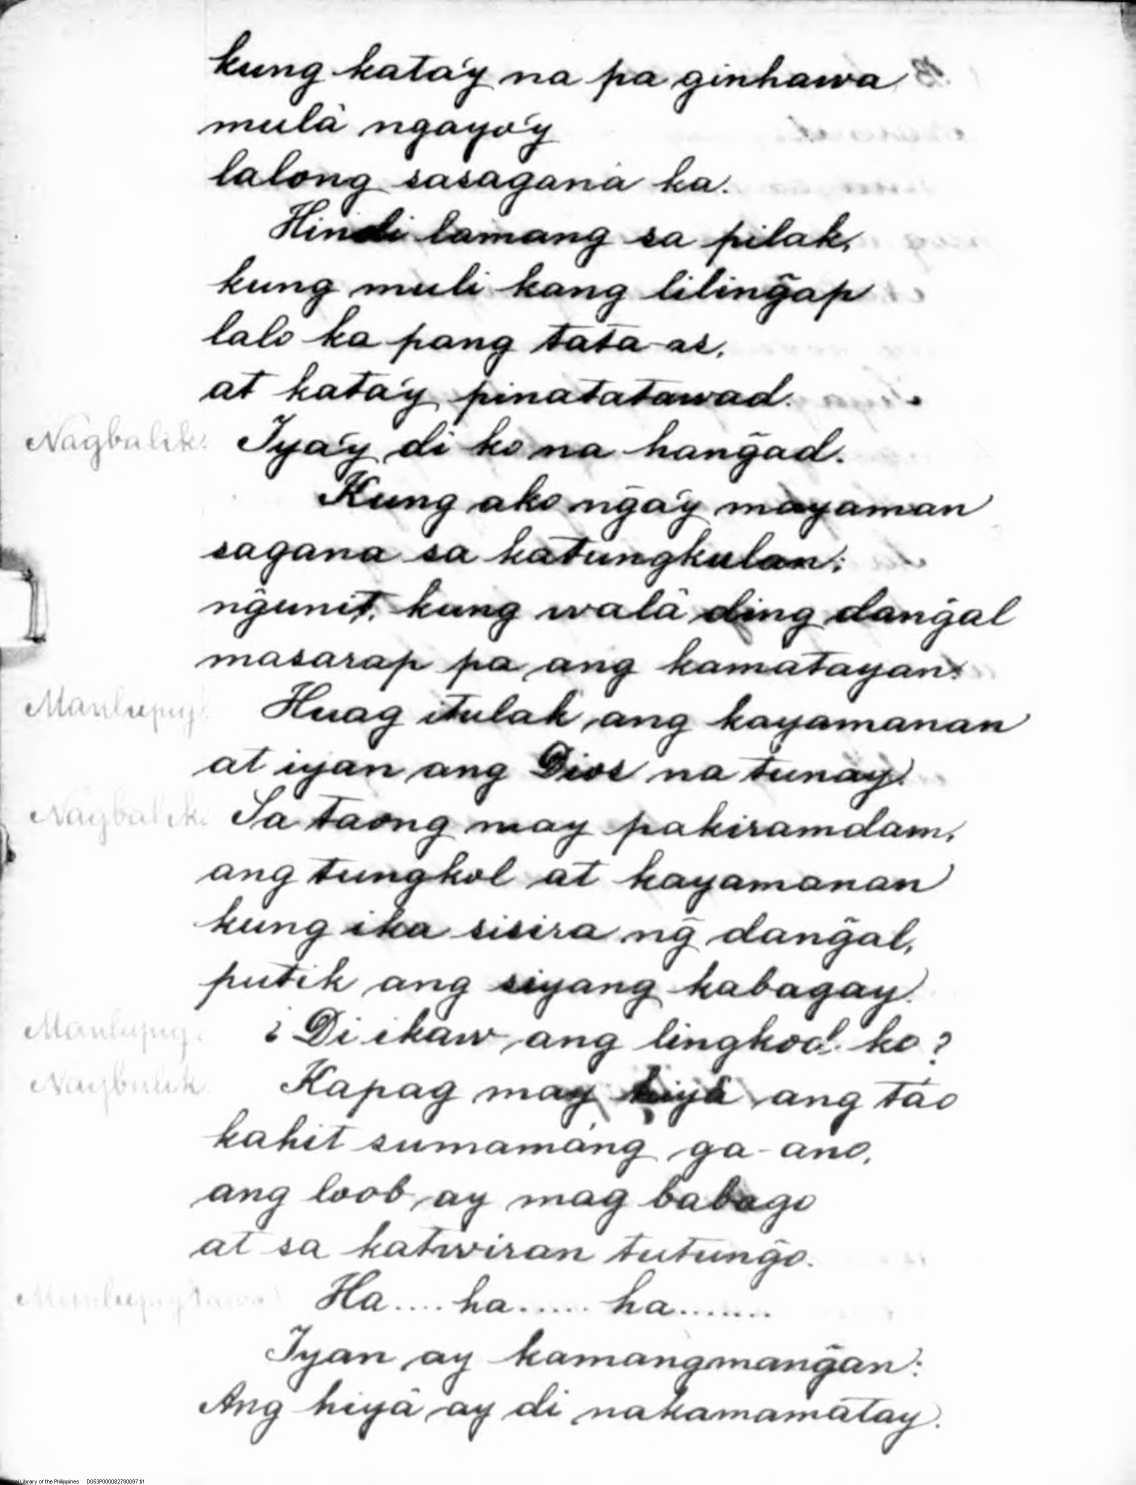 kung kata'y na pa ginhawa
mulâ ngayo'y
lalong sasagana ka.
Hindi lamang sa pilak,
kung muli kang liling̃ap
lalo ka pang tata-as,
at kata'y pinatatawad.
Nagbalik. Iya'y di ko na hang̃ad.
Kung ako ng̃a'y mayaman
sagana sa katungkulan;
ng̃unit, kung walâ ding dang̃al
masarap pa ang kamatayan.
Manlupig. Huag itulak ang kayamanan
at iyan ang Dios na tunay.
Nagbalik. Sa taong may pakiramdam,
ang tungkol at kayamanan
kung ika sisira ng̃ dang̃al,
putik ang siyang kabagay.
Manlupig. ¿Di ikaw ang lingkod ko?
Nagbalik. Kapag may hiyâ ang táo
kahit sumamáng ga-ano,
ang loob ay mag babago
at sa katwiran tutung̃o.
Manlupig Ha....ha......ha.......
Iyan ay kamangmang̃an:
Ang hiyâ ay di nakamamatay.
Library of the Philippines